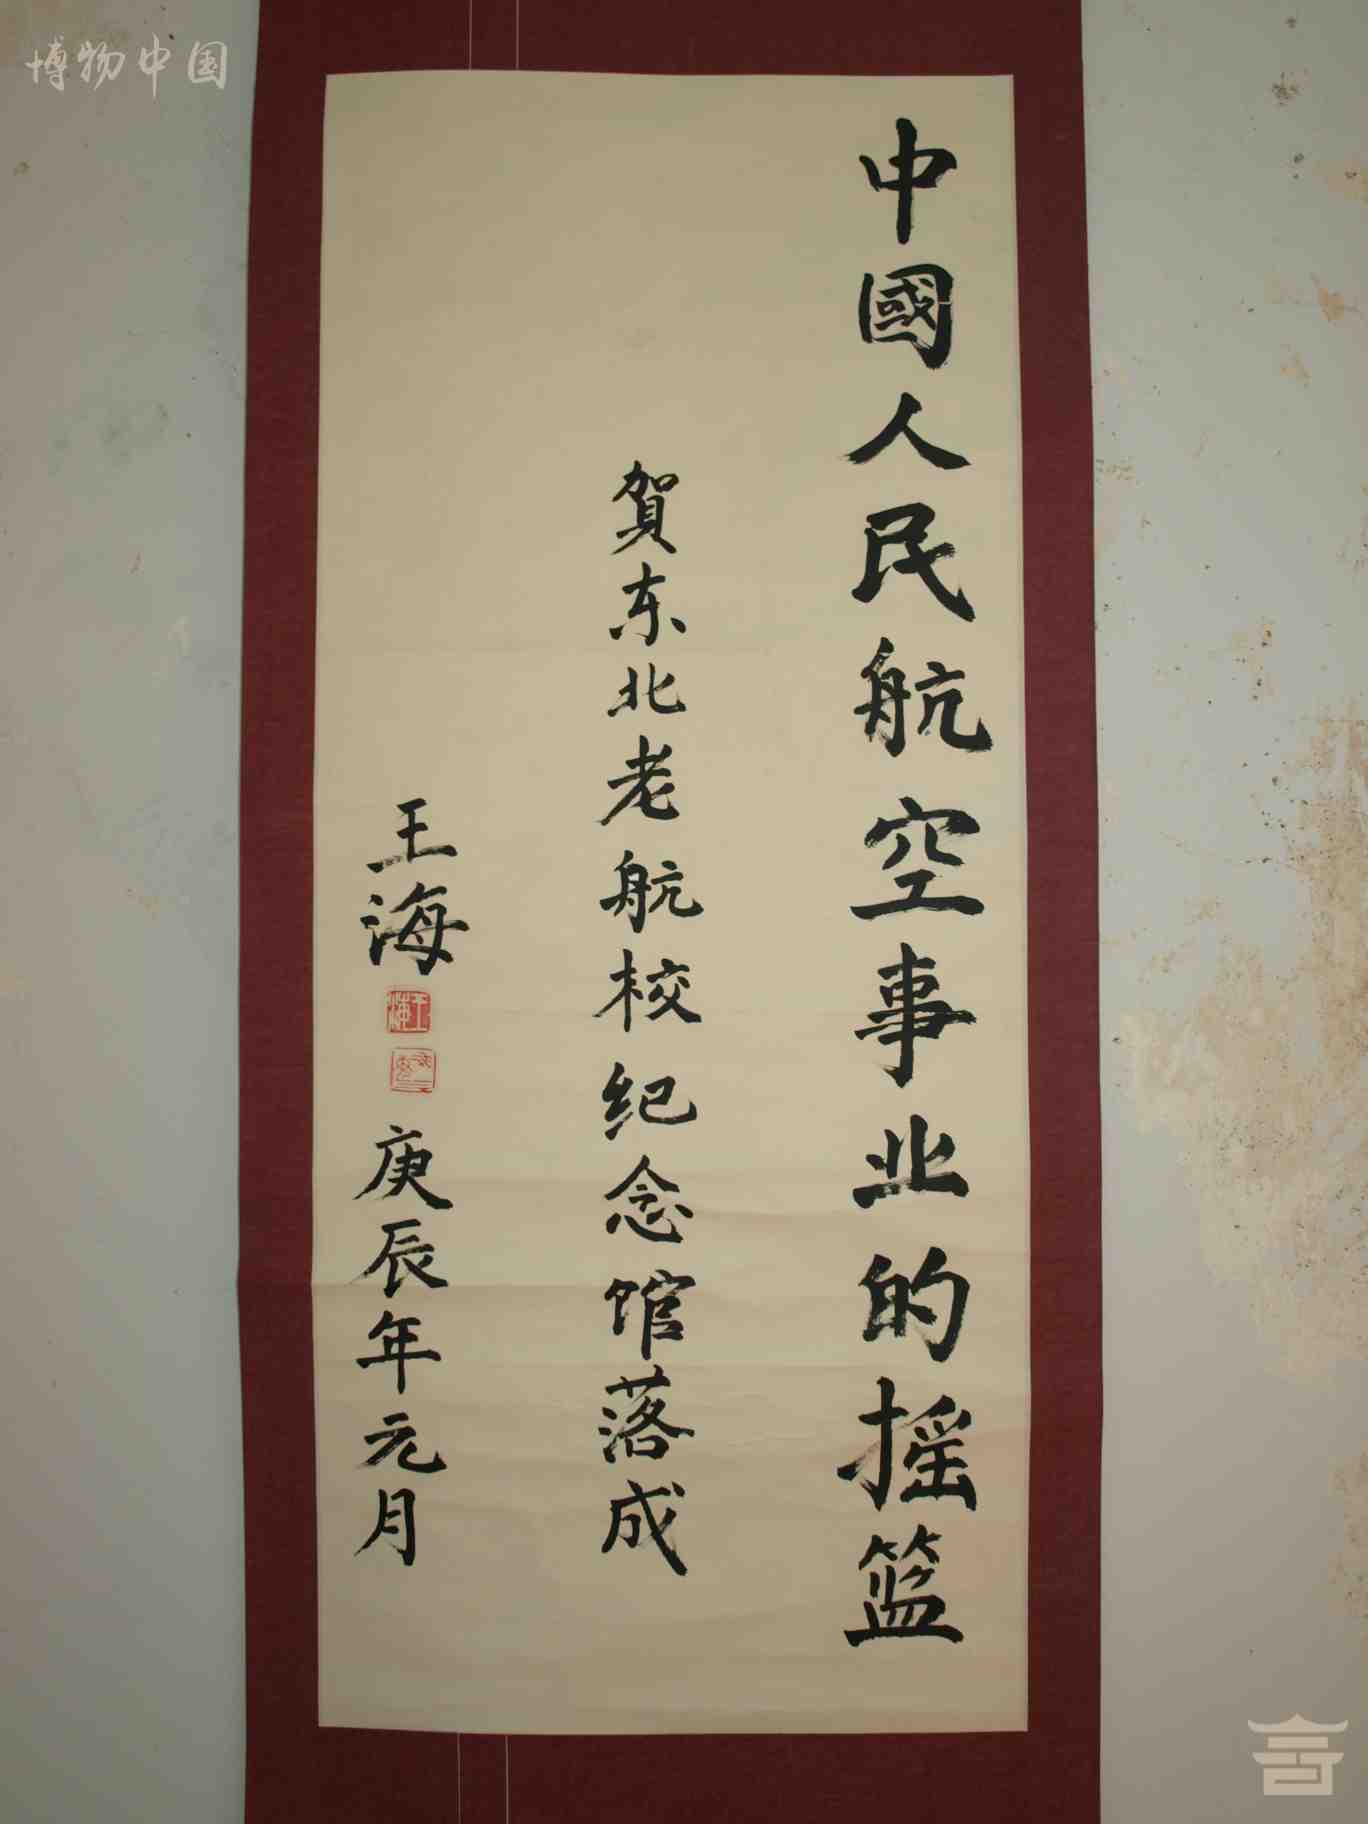 博物中国
中國人民航空事业的摇篮
賀东北老航校纪念馆落成
王海
王海
庚辰年元月